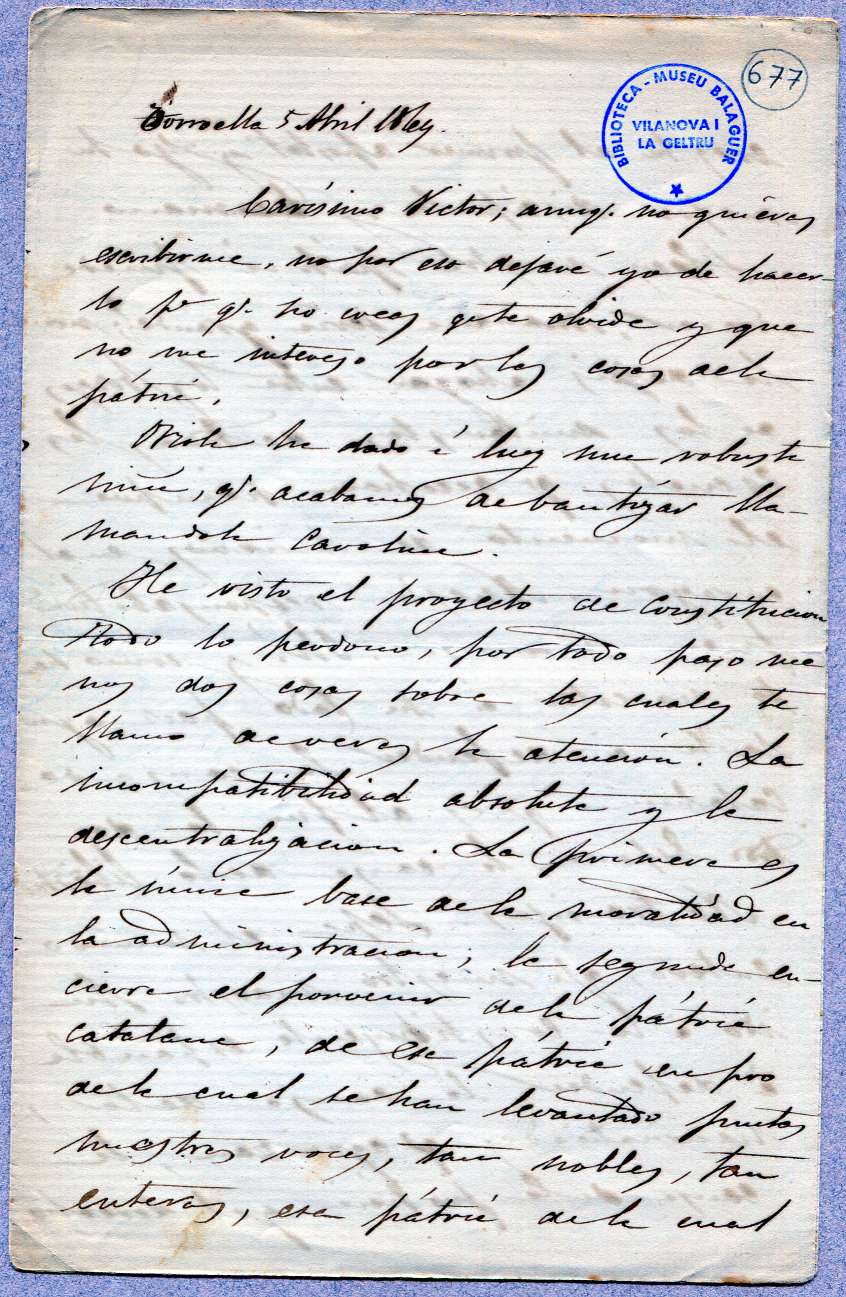 677
BIBLIOTECA-MUSEU BALAGUER
VILANOVA I
LA GELTRU
Torroella 5 Abril 1869.
Carísimo Victor; aunq. no quieras
escribirme, no por eso dejaré yo de hacer-
lo pa q. no creas q te olvide y que
no me intereso por las cosas de la
pátria.
ha dado á luz una robusta
niña, q. acabamos de bautizar lla-
mandola Carolina.
He visto el proyecto de constitucion
Todo lo perdono, por todo paso me
nos dos cosas sobre las cuales te
llamo de veras la atención. La
incompatibilidad absoluta y la
descentralizacion. La primera es
la única base de la moralidad en
la administración; la segunda en-
cierra el porvenir de la pátria
catalana, de esa pátria en pro
de la cual se han levantado juntas
nuestras voces, tan nobles, tan
enteras, esa pátria de la cual